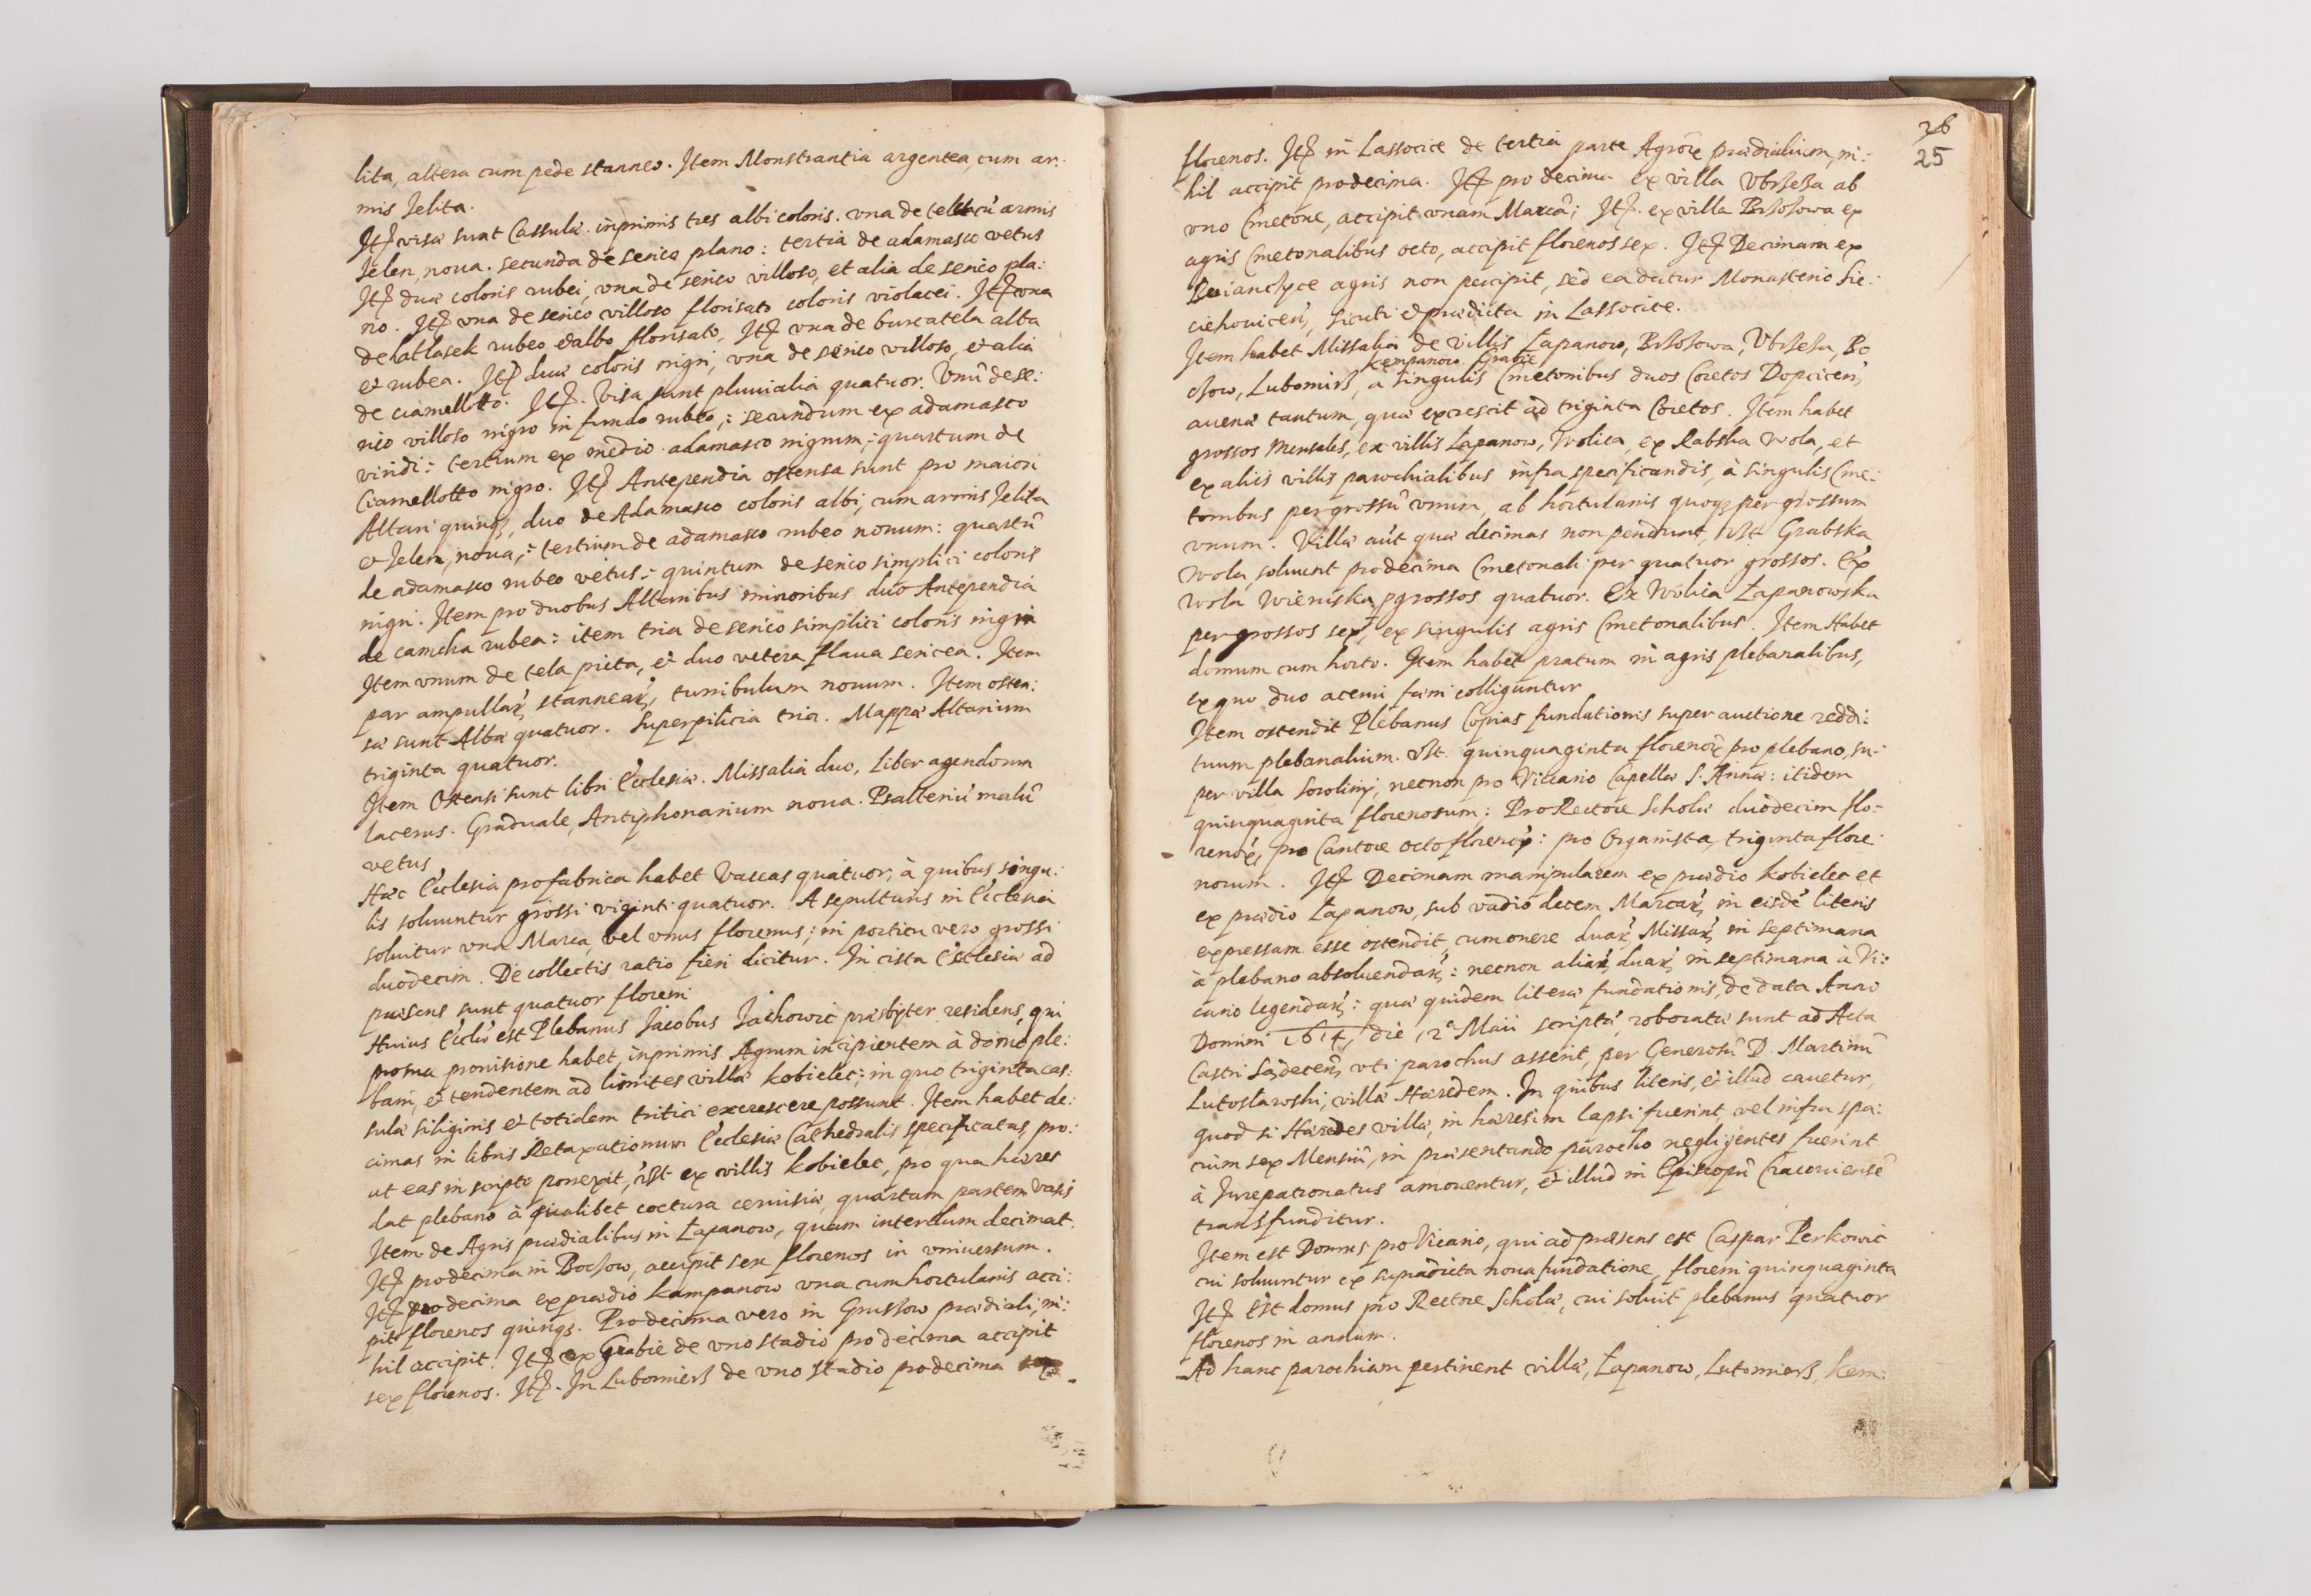 lita, altera cum pede stanneo. Item Monstrantia argentea, cum ar:
mis Jelita.
Itẽ visæ sunt Cassulæ. inprimis tres albi coloris. una de tela cũ armis
Jelen, noua. secunda de serico plano: tertia de adamasco vetus
Itẽ duæ coloris rubei, una de serico villoso, et alia de serico pla:
no. Itẽ una de serico villoso florisato coloris violacei. Itẽ una
de hatlasek rubeo et albo florisato, Itẽ una de burcatela alba
et rubea. Itẽ duæ coloris nigri, una de serico villoso, et alia
de ciamellotto. Itẽ. Visa sunt pluuialia quatuor. Vnũ de se:
rico villoso nigro in fundo rubeo,: secundum ex adamasco
viridi: tertium ex medio adamasco nigrum,: quartum de
Ciamellotto nigro. Itẽ Antependia ostensa sunt pro maiori
Altari quinqȝ, duo de Adamasco coloris albi, cum armis Jelita
et Jelen, noua,: tertium de adamasco rubeo nouum: quartũ
de adamasco rubeo vetus: quintum de serico simplici coloris
nigri. Item pro duobus Altaribus minoribus duo Antependia
de camcha rubea: item tria de serico simplici coloris nigri
Item vnum de tela picta, et duo vetera flaua sericea. Item
par ampullaꝝ stanneaꝝ, turribulum nouum. Item osten:
sæ sunt Albæ quatuor. Superpilicia tria. Mappæ Altarium
triginta quatuor.
Item Ostensi sunt libri Ecclesiæ. Missalia duo, Liber agendorum
lacerus. Graduale, Antiphonarium noua. Psalteriũ malũ
vetus
Hæc Ecclesia pro fabrica habet Vaccas quatuor, à quibus singu:
lis soluuntur grossi viginti quatuor. A sepulturis in Ecclesia
soluitur vna Marca, vel vnus florenus; in porticu vero grossi
duodecim. De collectis ratio fieri dicitur. In cista Ecclesiæ ad
præsens sunt quatuor floreni
Huius Ecclæ est Plebanus Jacobus Jachowic præsbyter residens, qui
pro sua prouisione habet, inprimis Agrum incipientem à domo ple:
bani, et tendentem ad limites villæ Kobielec; in quo triginta cas:
sulæ siliginis et totidem tritici excrescere possunt. Item habet de:
cimas in libris Retaxationum Ecclesiæ Cathedralis specificatas, pro:
ut eas in scripto porrexit, vſt ex villis Kobielec, pro qua hæres
dat plebano à qualibet coctura ceruisiæ, quartam partem Vasis
Item de Agris prædialibus in Łapanow, quam interdum decimat.
Itẽ pro decima in Boczow, accipit sex florenos in vniuersum.
Itẽ pro decima ex prædio Kampanow vna cum hortulanis acci:
pit florenos quinqȝ. Pro decima vero in Grussow prædiali, ni:
hil accipit. Itẽ ex Grabie de vno stadio pro decima accipit
sex florenos. Itẽ. In Lubomierß de vno stadio pro decima
26
25
florenos. Itẽ in Lassocice de tertia parte Agroꝝ prædialium, ni:
hil accipit pro decima. Itẽ pro decima ex villa Vbrzeza ab
vno Cmetone, accipit vnam Marcã; Itẽ. ex villa Brzozowa ex
agris Cmetonalibus octo, accipit florenos sex. Itẽ Decimam ex
agris non percipit, sed ea datur Monasterio Sie:
ciehouiceñ, sicuti et prædicta in Lassocice.
Item habet Missalia de villis Łapanow, Brzozowa, Vbrzeza, Bo
Kempanow. Grabie,
czow, Lubomirß, a singulis Cmetonibus duos Coretos Dopciceñ,
auenæ tantum, quæ excrescit ad triginta Coretos. Item habet
grossos Mensales, ex villis Łapanow, Wolica, ex Rabska Wola, et
ex aliis villis parochialibus infra specificandis, à singulis Cme:
tonibus per grossũ vnum, ab hortulanis quoqȝ per grossum
vnum. Villæ aũt quæ decimas non pendunt, vſt Grabska
Wola, soluunt pro decima Cmetonali per quatuor grossos. Ex
Wola Wieniska, p grossos quatuor. Ex Wolica Łapanowska
per grossos sex, ex singulis agris Cmetonalibus. Item Habet
domum cum horto. Item habet pratum in agris plebanalibus,
ex quo duo acerui fæni colliguntur
Item ostendit Plebanus Copias fundationis super auctione reddi:
tuum plebanalium. vſt. quinquaginta florenoꝝ pro plebano, su:
per villa Soroliny, necnon pro Viccario Capellæ S. Annæ: itidem
quinquaginta florenorum; Pro Rectore Scholæ duodecim flo:
renoꝝ, pro Cantore octo florenoꝝ: pro Organista, triginta flore:
norum. Itẽ Decimam manipularem ex prædio Kobielec et
ex prædio Łapanow, sub vadio decem Marcaꝝ, in eisdẽ literis
expressam esse ostendit, cum onere duaꝝ Missaꝝ in septimana
à plebano absoluendaꝝ: necnon aliaꝝ duaꝝ in septimana à Vi:
cario legendaꝝ: quæ quidem literæ fundationis, de data Anno
Domini 1614, die 12ª Maii scriptæ, roboratæ sunt ad Acta
Castri Sądeceñ, vti parochus asserit, per Generosũ D. Martinũ
Lutosławski, villæ Hæredem. In quibus literis, et illud cauetur,
quod si Hæredes villæ, in hæresim lapsi fuerint vel infra spa:
cium sex Mensiũ, in præsentando parocho negligentes fuerint
à Jurepatronatus amouentur, et illud in Episcopũ Cracouiensẽ
transfunditur.
Item est Domus pro Vicario, qui ad præsens est Caspar Perkowic
cui soluuntur ex supradicta noua fundatione, floreni quinquaginta
Itẽ Est domus pro Rectore Scholæ, cui soluit plebanus quatuor
florenos in annum.
Ad hanc parochiam pertinent villæ, Łapanow, Lutomierß, Kem: